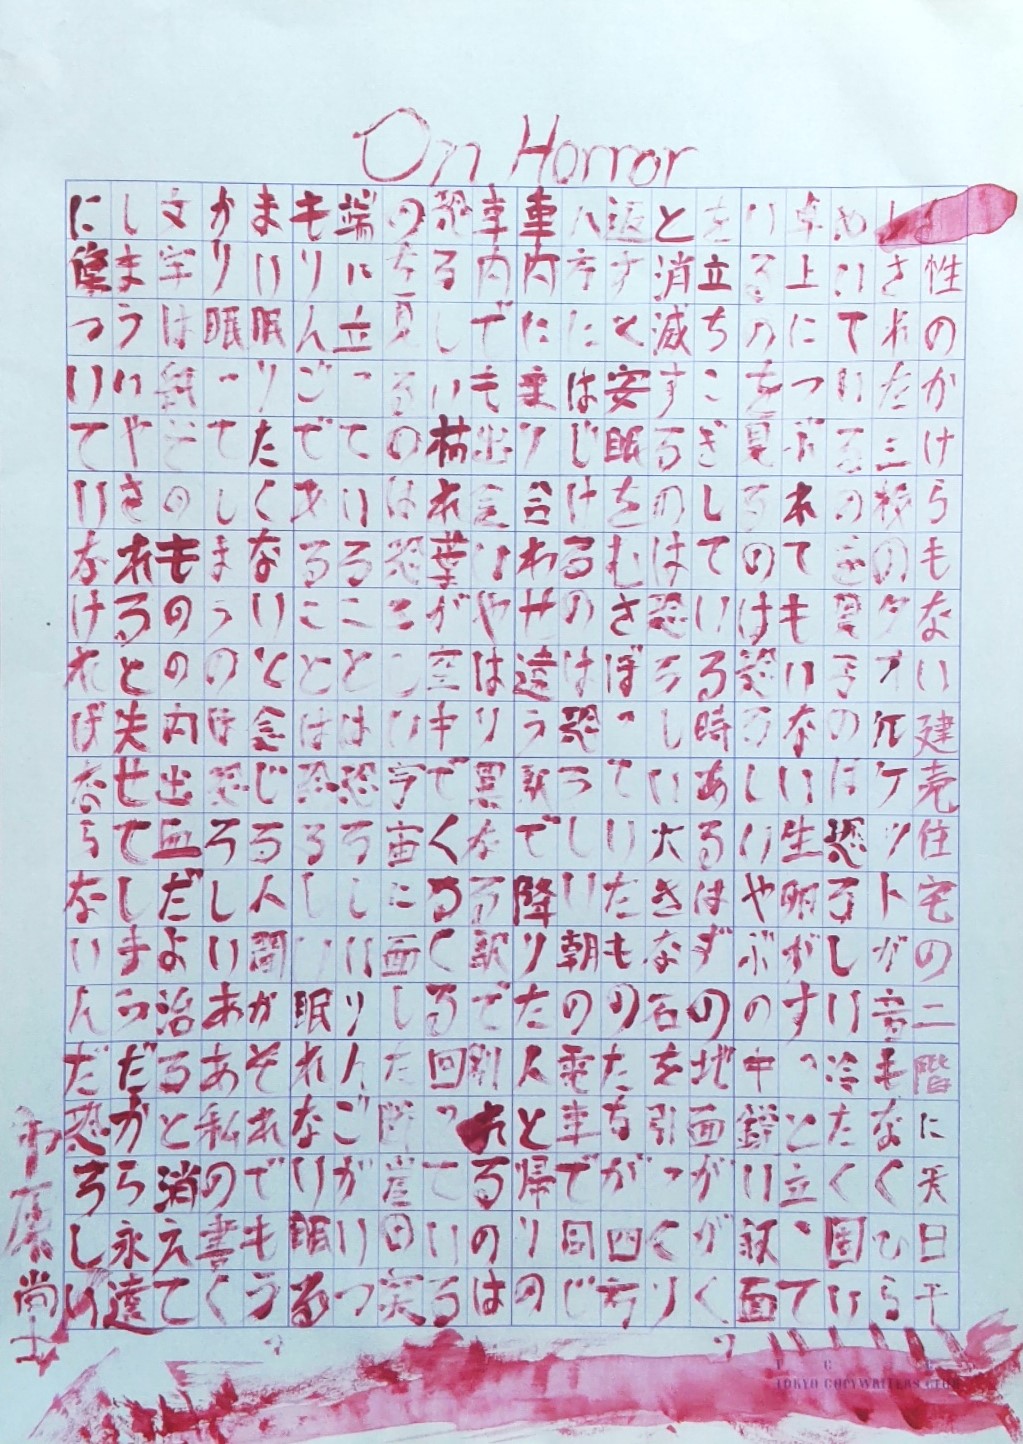 On Horror
性のかけらもない建売住宅の二階に天日干
しされた三枚のタオルケットが音もなくひら
めいているのを見るのは恐ろしい冷たく固い
卓上につぶれてもいない生卵がすっと立って
いるのを見るのは恐ろしいやぶの中
を立ちこぎしている時あるはずの地面がぐにゃ
と消滅するのは恐ろしい大きな石を引っくり
返すと安眠をむさぼっていたものたちが四方
八方にはじけるのは恐ろしい朝の電車で同じ
車内に乗り合わせ違う駅で降りた人と帰りの
車内でも出会いやはり異なる駅で別れるのは
恐ろしい枯れ葉が空中でくるくる回っている
のを見るのは恐ろしい宇宙に面した断崖の突
端に立っていることは恐ろしいりんごがいつ
もりんごであることは恐ろしい眠れない眠る
まい眠りたくないと念じる人間がそれでもう
かり眠ってしまうのは恐ろしいああ私の書く
文字は紙どのものの内出血だよ治ると消えて
しまういやされると失せてしまうだから永遠
に傷ついていなければならないんだ恐ろしい
原尚
TCC
TOKYO COPYWRITERS CLUB